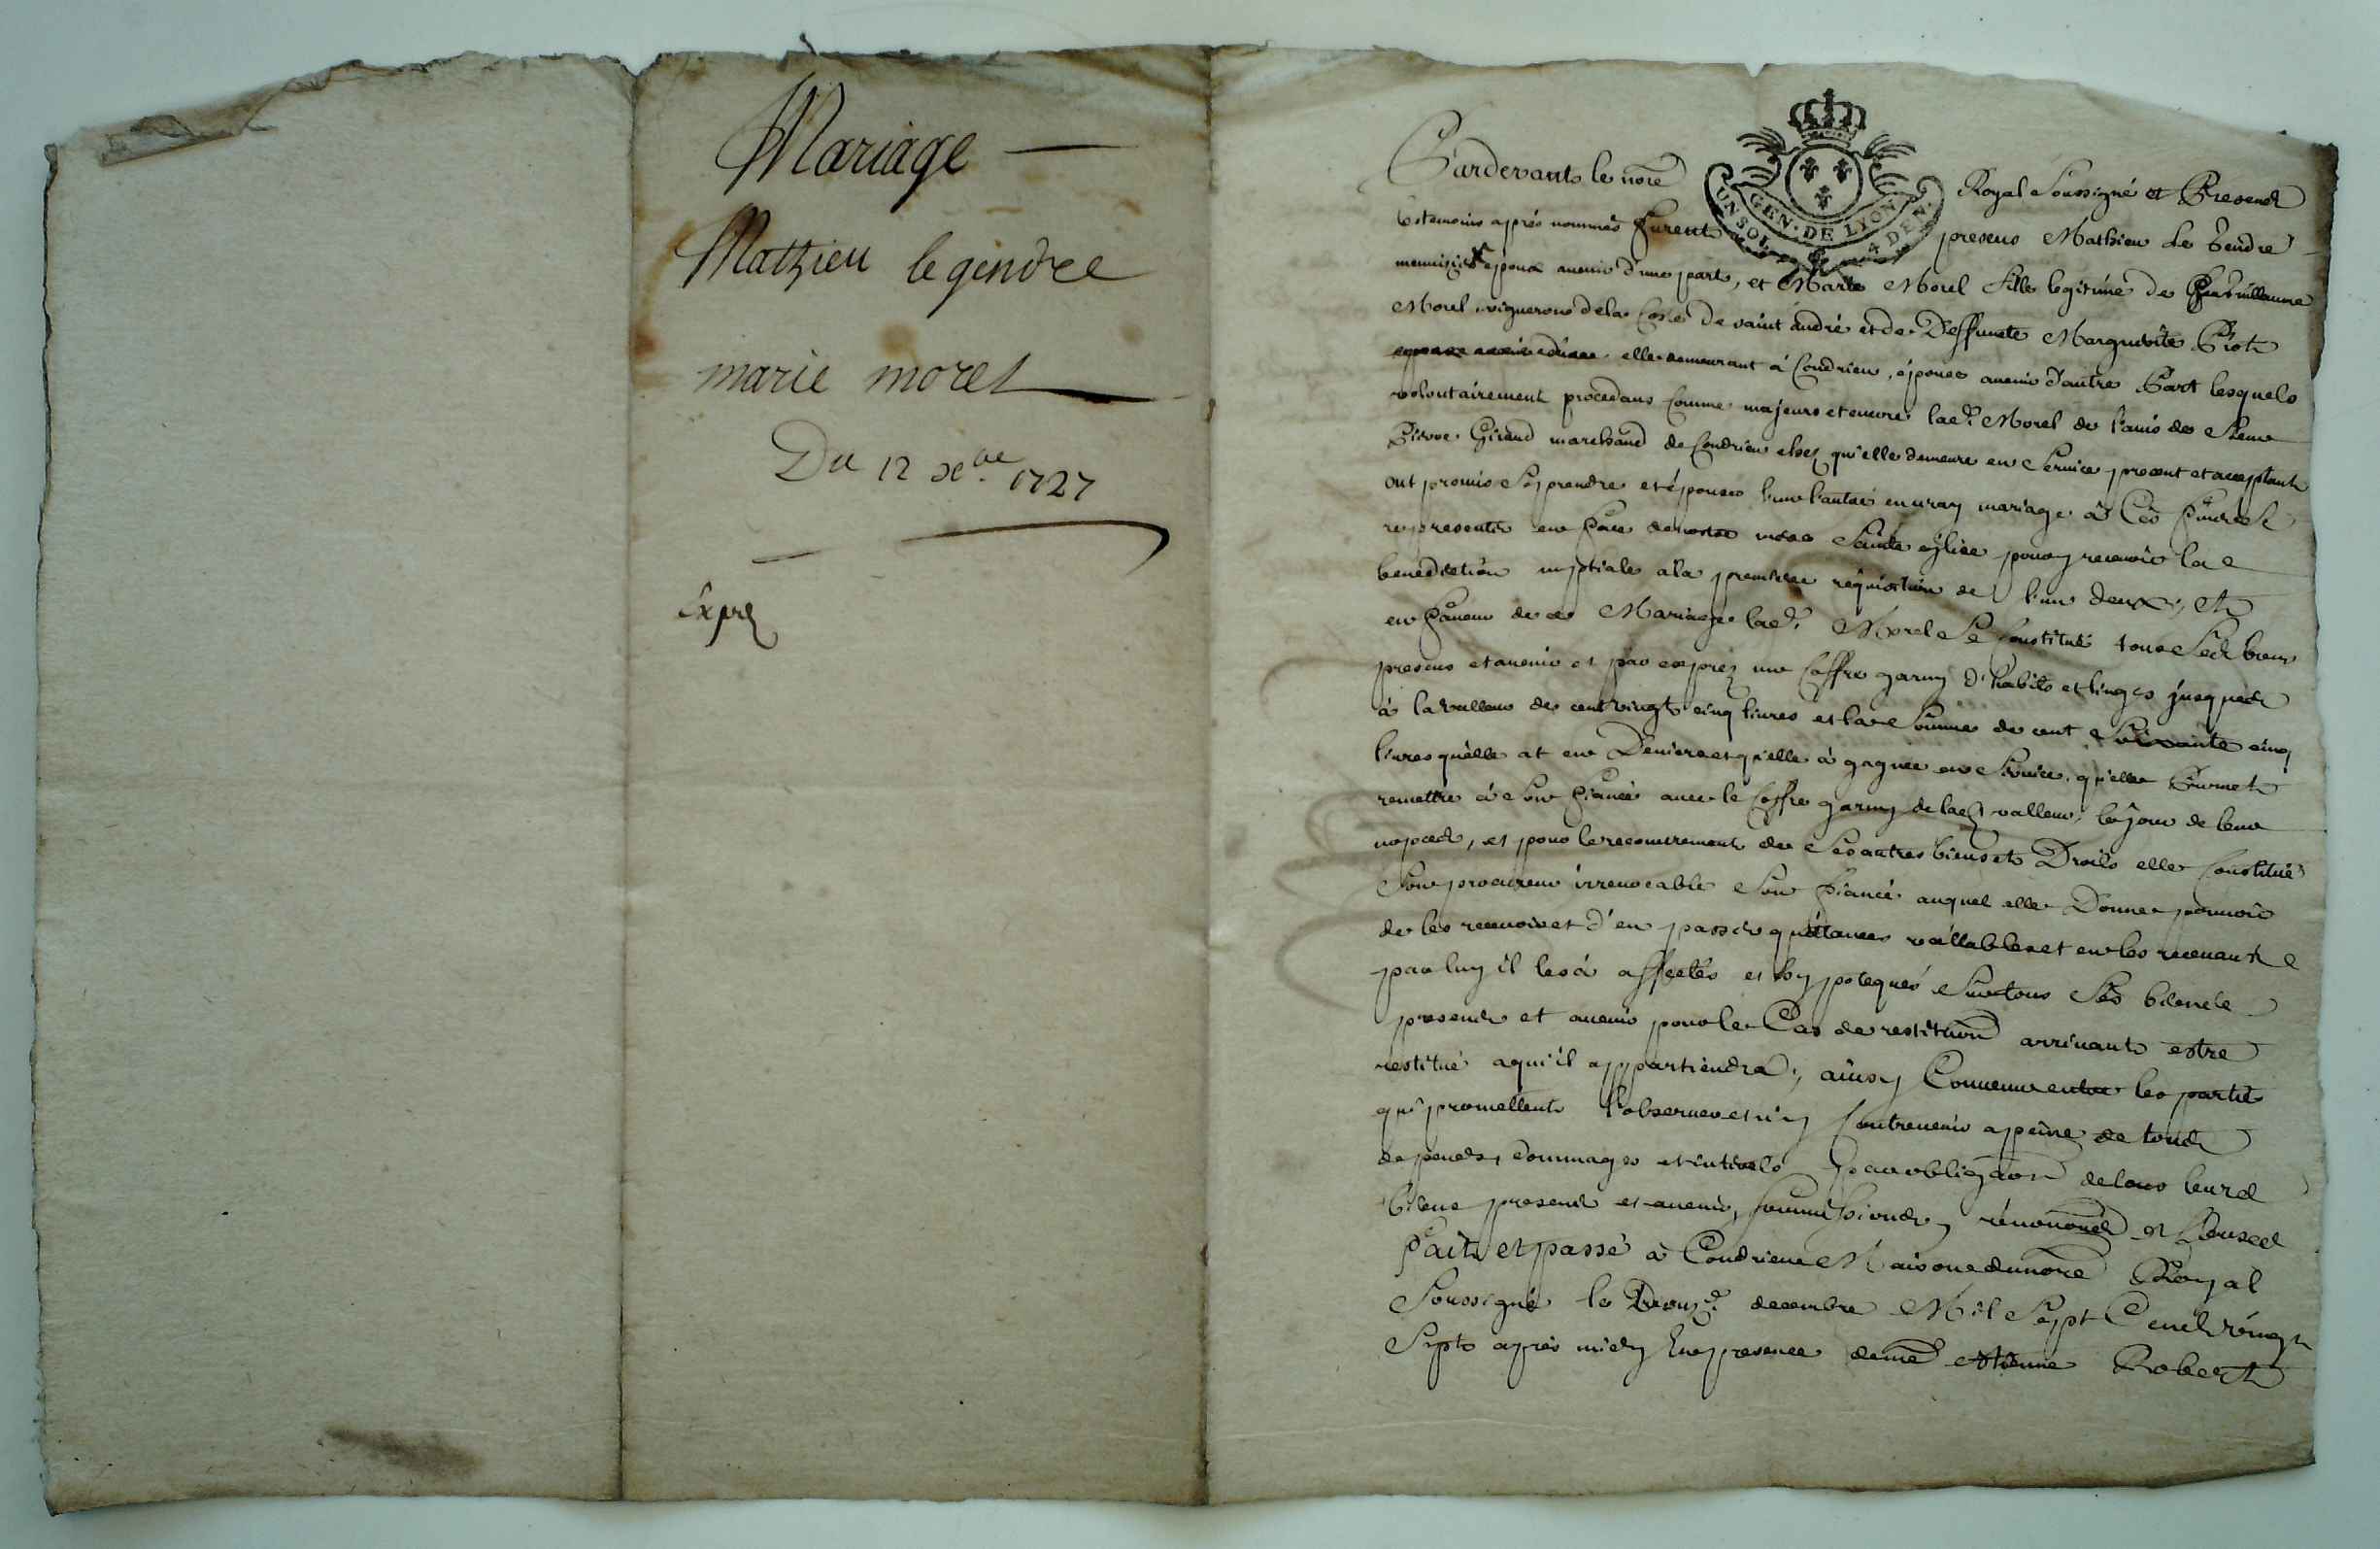 Mariage
Mathieu legendre
marie morel
Du 12 xbre 1727
Expé
GEN. DE LYON
UN SOL 4 DEN.
Pardevant le nore Royal soussigné et Presents
tesmoins après nommés furent presens Mathieu Le Gendre
menuisier époux avenir d'une part, et Marie Morel fille legitime de Guillaume
Morel vigneron de la Coste de saint andré et de Deffuncte Marguerite
elle demeurant à Condrieu, épouse avenir d'autre Part lesquels
volontairement procedans comme majeurs et encore lad. Morel de l'avis de sieur
Pierre Giraud marchand de Condrieu chez qu'elle demeure en service present et acceptant
ont promis se prendre et épouser l'un l'autre en vray mariage à ces fins se
representer en face de nostre mere Sainte église pour y recevoir la
benediction nuptiale à la premiere requisition de l'un deux, Et
en faveur de ce Mariage lad. Morel se Constitue tous ses biens
presens et avenir et par exprez un Coffre garny d'habits et linges jusques
à la valleur de cent vingt cinq livres et la somme de cent soixante cinq
livres qu'elle at en Deniers et qu'elle à gagnée en service, qu'elle Promet
remettre à son fiancé avec le Coffre garny de lad valleur, le jour de leur
nopces, et pour le recouvrement de ses autres biens et Droits elle Constitue
son procureur irrevocable son fiancé auquel elle Donne pouvoir
de les recevoir et d'en passer quittances vallables et en les recevant
par luy il les à affectés et hypotequés sur tous ses biens
presents et avenir pour le Cas de restituon arrivant estre
restitué a qu'il appartiendra, ainsy Convenu entre les parties
qui promettent l'observer et n'y Contrevenir a peine de tous
despens, dommages et interests par obligaon de tous leurs
biens presents et avenir, soumissions, renonons et Clauses
Fait et passé à Condrieu Maison du nore Royal
Soussigné le Douze decembre Mil Sept Cent vingt
Sept après midy En presence de me Estienne Robert